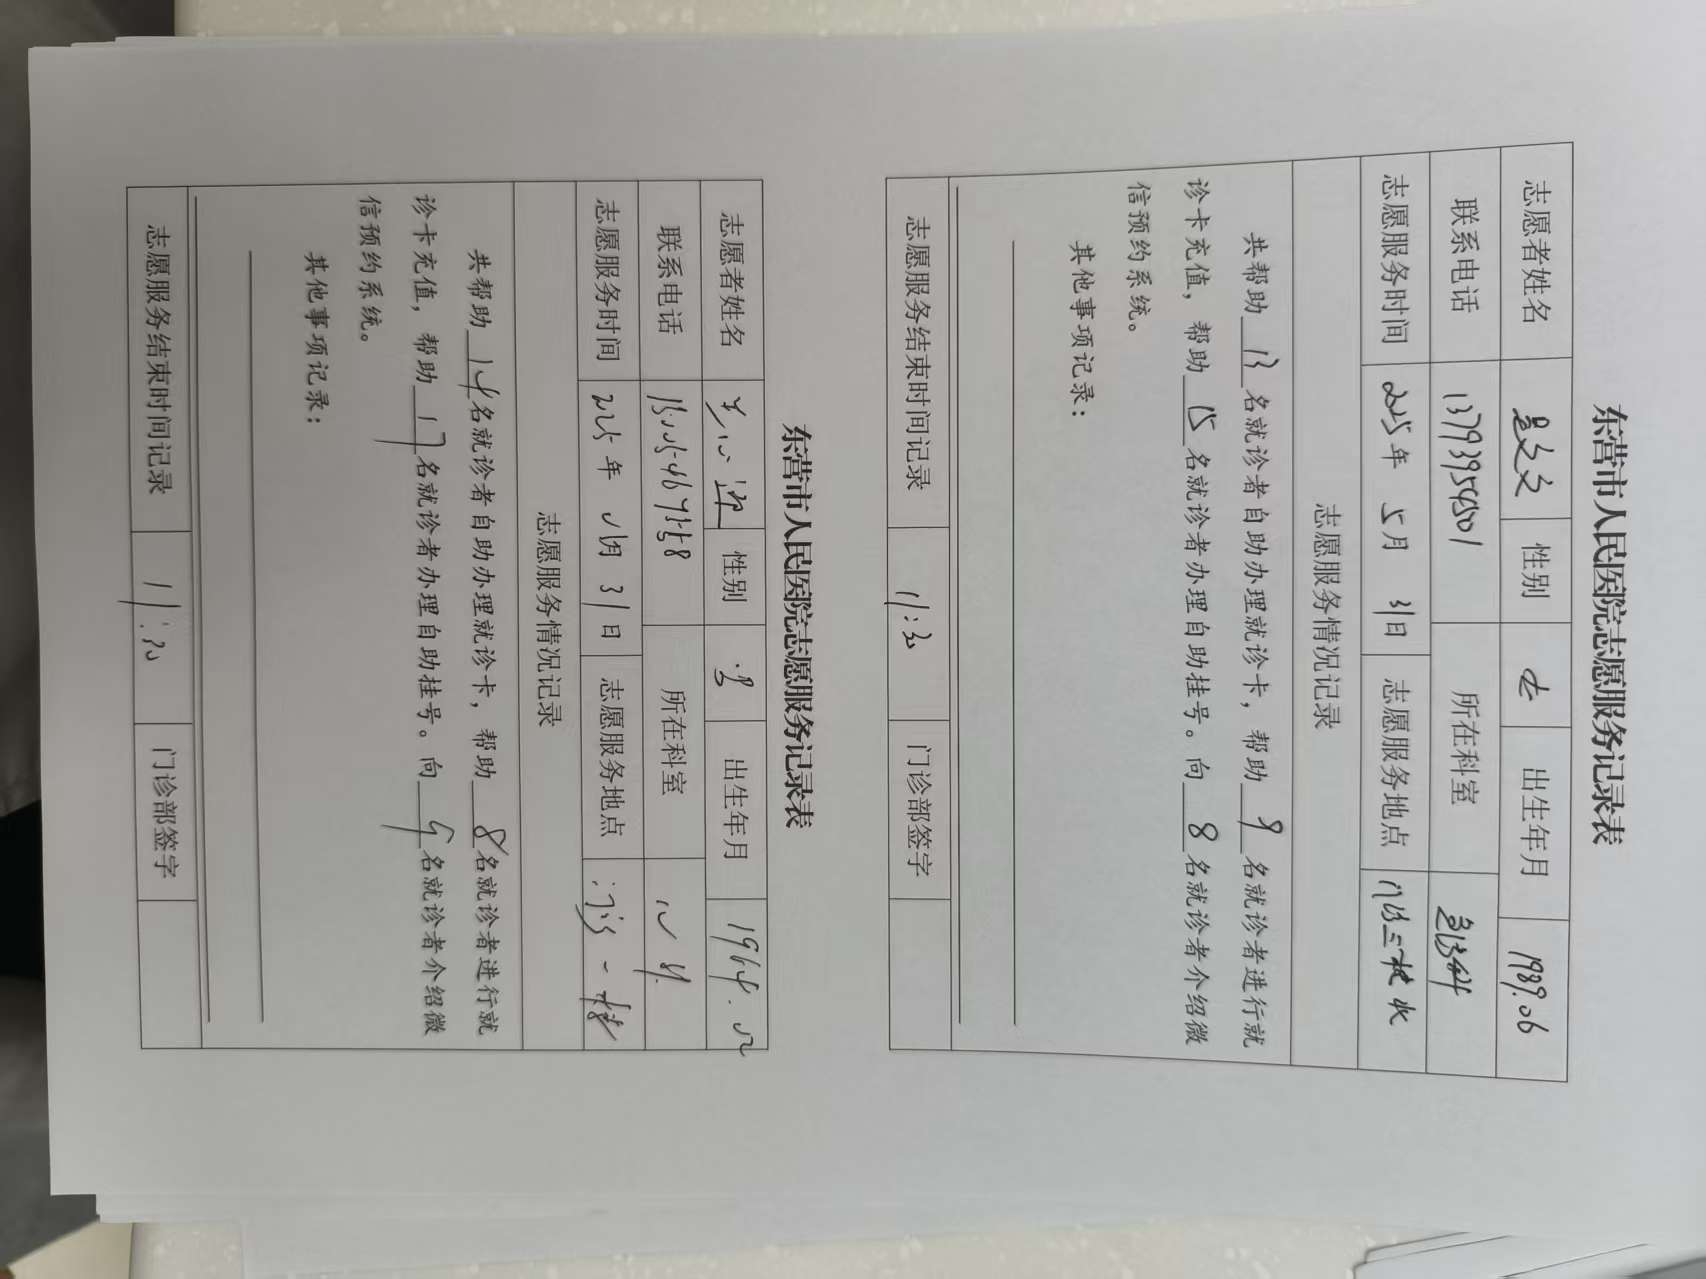 东营市人民医院志愿服务记录表
志愿者姓名 性别 女 出生年月 1989.06
联系电话 13793954501 所在科室
志愿服务时间 2025年 5月 31日 志愿服务地点
志愿服务情况记录
共帮助 13 名就诊者自助办理就诊卡，帮助 9 名就诊者进行就
诊卡充值，帮助 15 名就诊者办理自助挂号。向 8 名就诊者介绍微
信预约系统。
其他事项记录：
志愿服务结束时间记录 11:30 门诊部签字
东营市人民医院志愿服务记录表
志愿者姓名 性别 男 出生年月
联系电话 所在科室
志愿服务时间 2025年 月 31日 志愿服务地点
志愿服务情况记录
共帮助 14 名就诊者自助办理就诊卡，帮助 8 名就诊者进行就
诊卡充值，帮助 17 名就诊者办理自助挂号。向 9 名就诊者介绍微
信预约系统。
其他事项记录：
志愿服务结束时间记录 11:30 门诊部签字